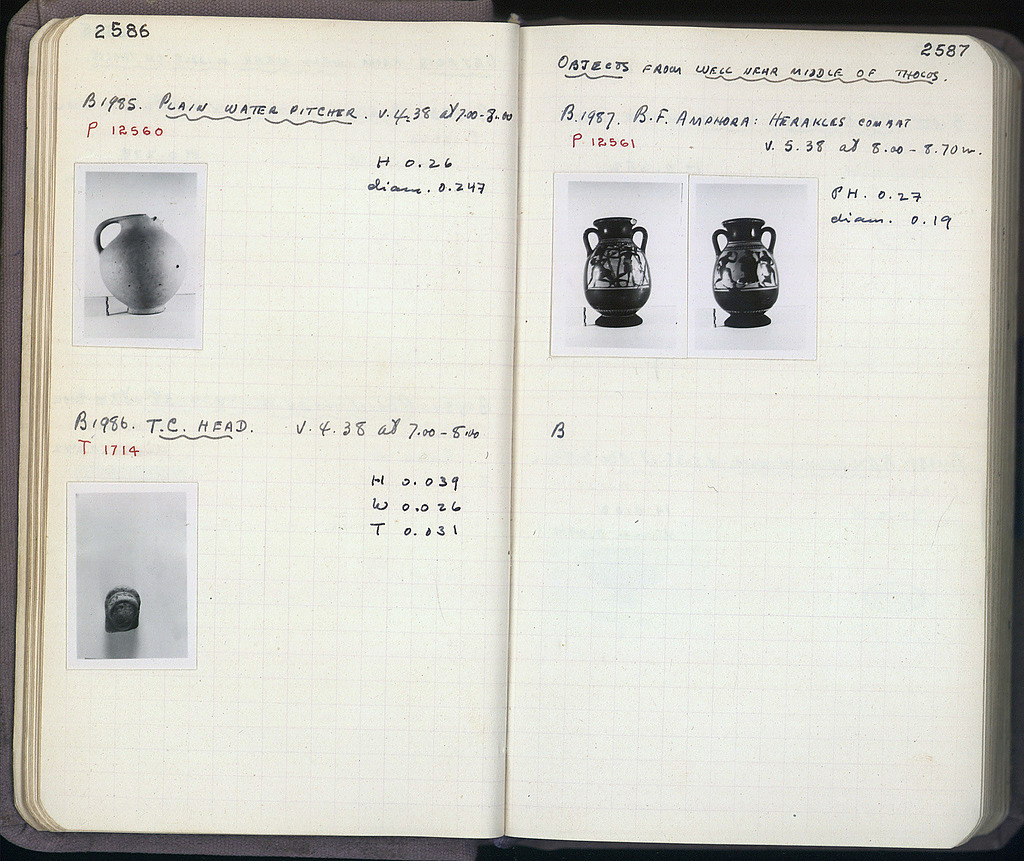 2586
B1985. PLAIN WATER PITCHER. V.4.38 at 7.00-8.00
P 12560
H 0.26
diam. 0.247
B1986. T.C. HEAD. V.4.38 at 7.00-8.00
T 1714
H 0.039
W 0.026
T 0.031
2587
OBJECTS FROM WELL NEAR MIDDLE OF THOLOS.
B.1987. B.F. AMPHORA: HERAKLES COMBAT
P 12561
V. 5.38 at 8.00 - 8.70m.
PH. 0.27
diam. 0.19
B